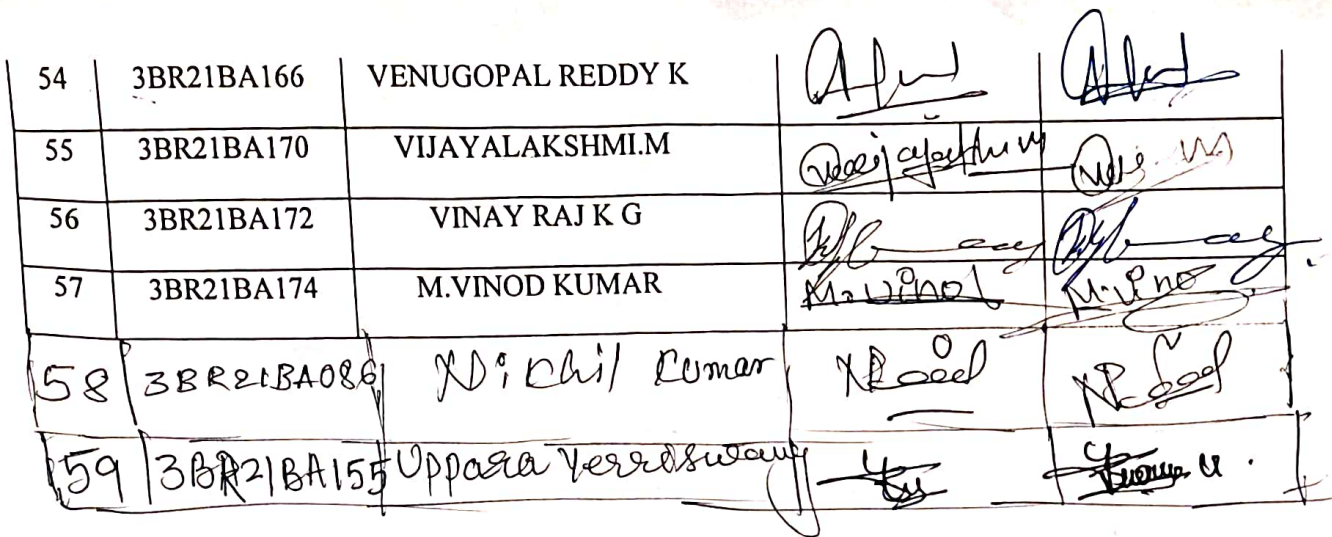 54 3BR21BA166 VENUGOPAL REDDY K
55 3BR21BA170 VIJAYALAKSHMI.M
56 3BR21BA172 VINAY RAJ K G
57 3BR21BA174 M.VINOD KUMAR M.Vinod M.Vino
58 3BR21BA086 Nikhil Kumar
59 3BR21BA155 Uppara Yerriswamy